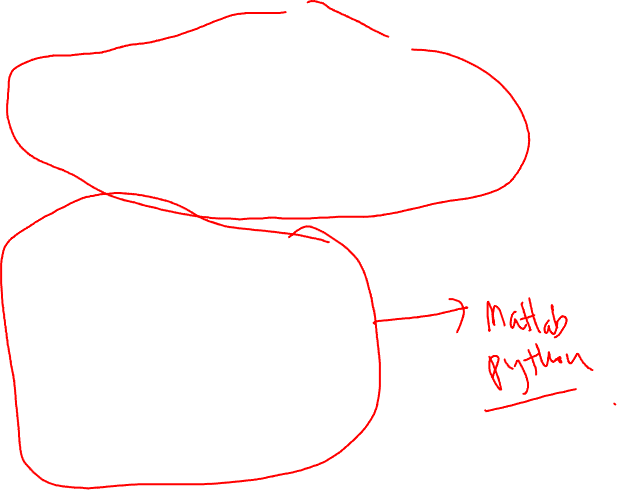 Matlab
python